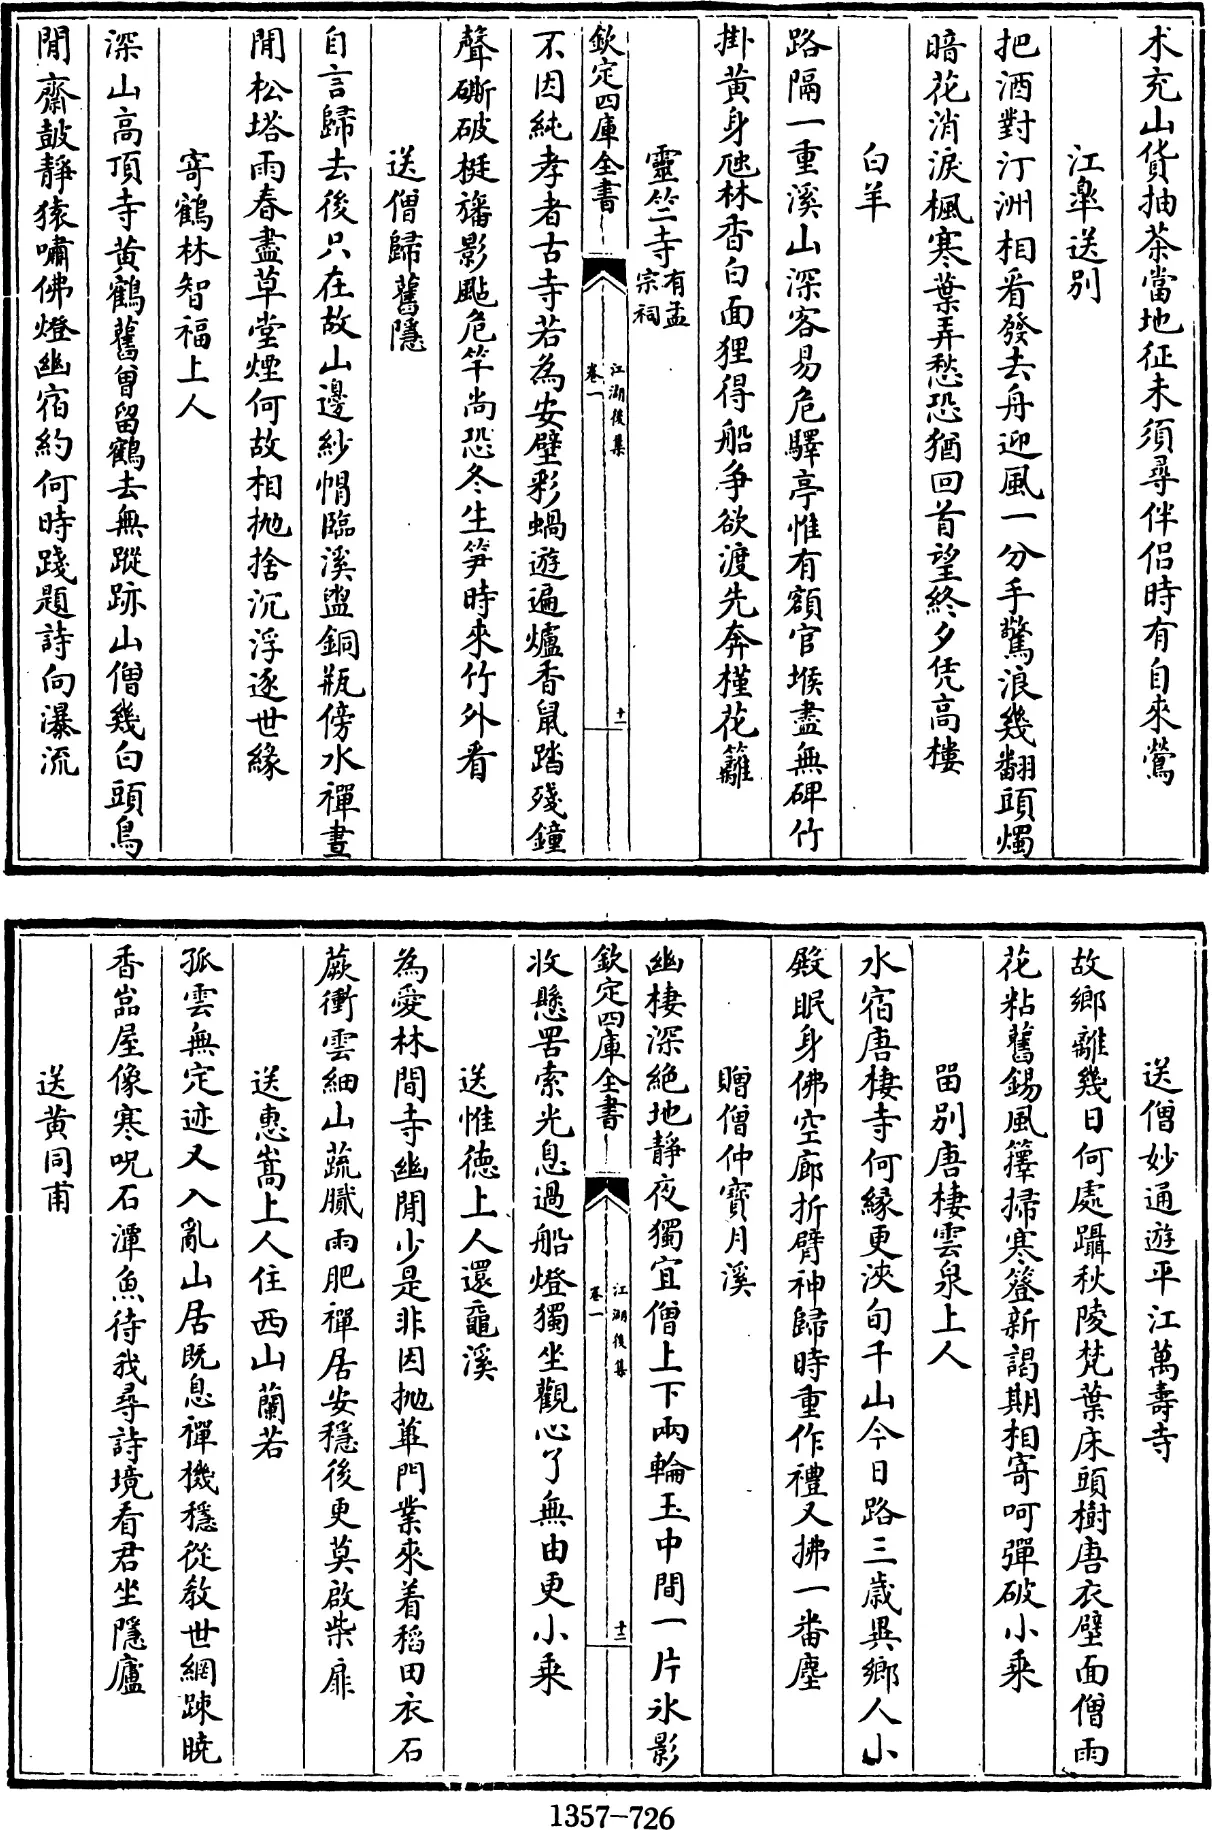 朮充山貨抽茶當地征未須尋伴侶時有自來鶯
江臯送別
把酒對汀洲相看發去舟迎風一分手驚浪幾翻頭燭
暗花消淚楓寒葉弄愁恐猶回首望終夕凭高樓
白羊
路隔一重溪山深客易危驛亭惟有額官堠盡無碑竹
掛黃身虺林香白面狸得船爭欲渡先奔槿花籬
靈竺寺有孟宗祠
欽定四庫全書
江湖後集
卷一
十一
不因純孝者古寺若為安壁彩蝸遊遍爐香鼠踏殘鐘
聲磭破梃旛影颭危竿尚恐冬生笋時來竹外看
送僧歸舊隱
自言歸去後只在故山邊紗帽臨溪盥銅瓶傍水禪晝
閒松塔雨春盡草堂煙何故相拋捨沉浮逐世緣
寄鶴林智福上人
深山高頂寺黃鶴舊曾留鶴去無蹤跡山僧幾白頭鳥
閒齋鼓靜猿嘯佛燈幽宿約何時踐題詩向瀑流
送僧妙通遊平江萬壽寺
故鄉離幾日何處躡秋陵梵葉床頭樹唐衣壁面僧雨
花粘舊錫風籜掃寒簦新謁期相寄呵彈破小乘
畱別唐棲雲泉上人
水宿唐棲寺何緣更浹旬千山今日路三歲異鄉人小
殿眠身佛空廊折臂神歸時重作禮又拂一畨塵
贈僧仲寶月溪
幽棲深絶地靜夜獨宜僧上下兩輪玉中間一片氷影
欽定四庫全書
江湖後集
卷一
十二
收懸罟索光息過船燈獨坐觀心了無由更小乘
送惟德上人還龜溪
為愛林間寺幽閒少是非因拋蓽門業來着稻田衣石
蕨衝雲細山蔬膩雨肥禪居安穩後更莫啟柴扉
送惠嵩上人住西山蘭若
孤雲無定迹又入亂山居既息禪機穩從教世網踈曉
香嵓屋像寒呪石潭魚待我尋詩境看君坐隱廬
送黃同甫
1357-726